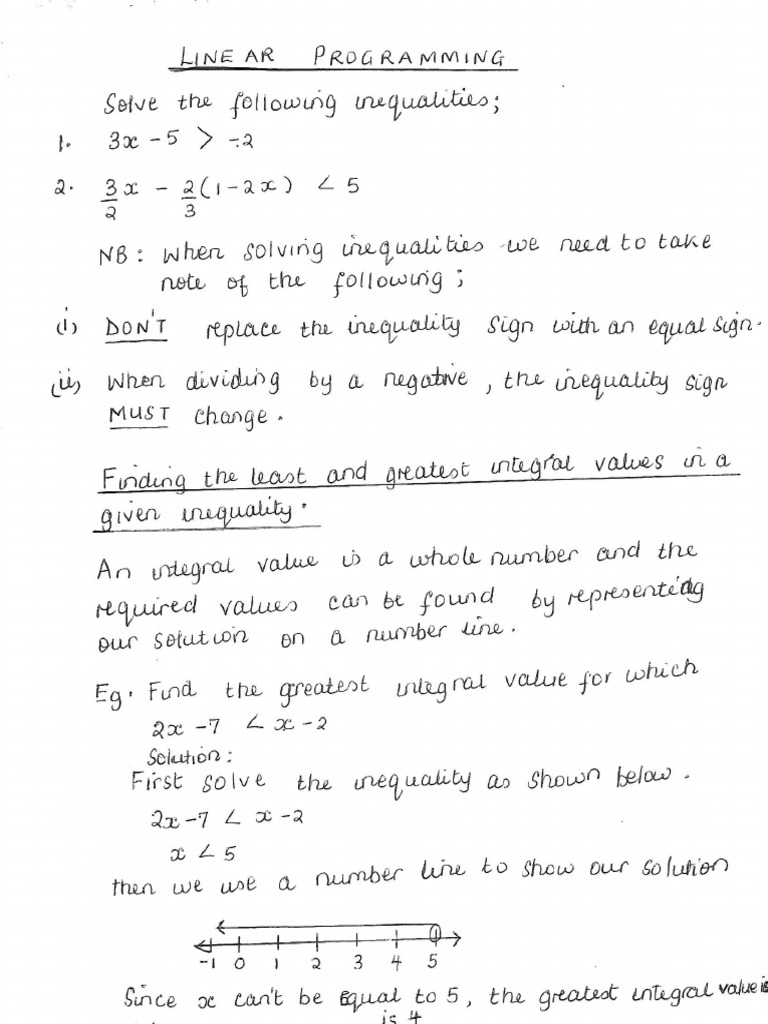 LINEAR PROGRAMMING
Solve the following inequalities;
1. 3x - 5 > -2
2. 3/2 x - 2/3 (1 - 2x) < 5
NB: When solving inequalities we need to take
note of the following;
(i) DON'T replace the inequality sign with an equal sign.
(ii) When dividing by a negative, the inequality sign
MUST change.
Finding the least and greatest integral values in a
given inequality.
An integral value is a whole number and the
required values can be found by representing
our solution on a number line.
Eg. Find the greatest integral value for which
2x - 7 < x - 2
Solution:
First solve the inequality as shown below.
2x - 7 < x - 2
x < 5
then we use a number line to show our solution
-1 0 1 2 3 4 5
Since x can't be Equal to 5, the greatest integral value is
is 4